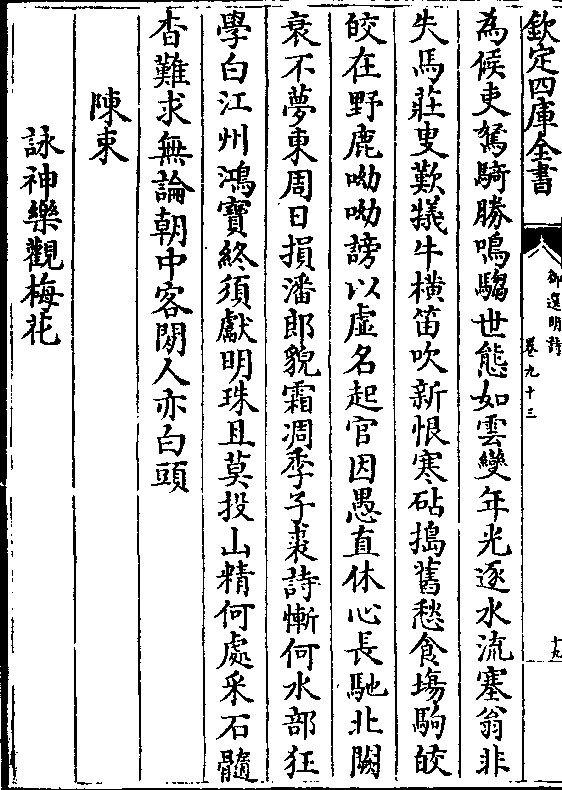 欽定四庫全書
御選明詩
卷九十三
十九
為候吏駑騎勝鳴騶世態如雲變年光逐水流塞翁非
失馬莊叟歎犧牛橫笛吹新恨寒砧搗舊愁食場駒皎
皎在野鹿呦呦謗以虛名起官因愚直休心長馳北闕
衰不夢東周日損潘郎貌霜凋季子裘詩慚何水部狂
學白江州鴻寶終須獻明珠且莫投山精何處采石髓
杳難求無論朝中客閒人亦白頭
陳束
詠神樂觀梅花